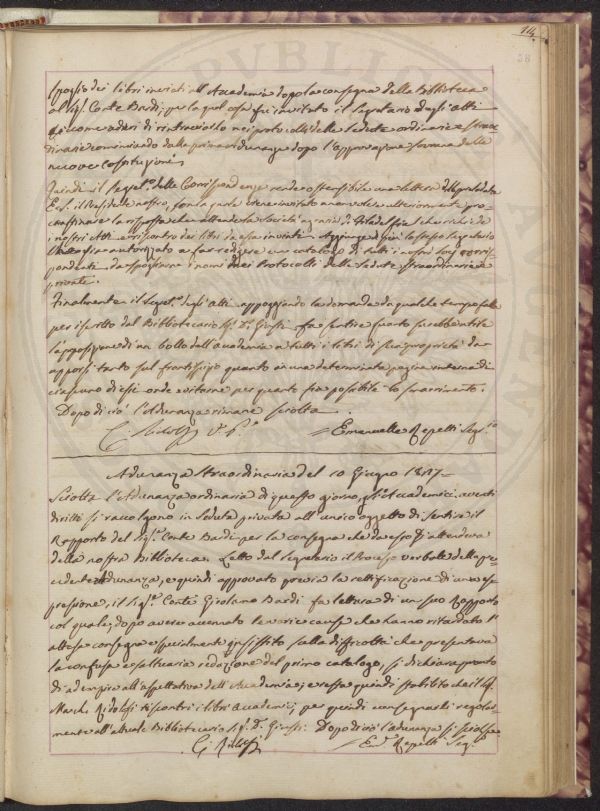 114.
58
spoglio dei libri inviati all'Accademia dopo la consegna della Biblioteca
al Sigr. Conte Bardi; per la qual cosa fu invitato il Segretario degli atti
di rintracciarlo nei protocolli delle Sedute ordinarie e straor
dinarie cominciando dalla prima adunanza dopo l'approvazione Sovrana delle
nuove Costituzioni.
Quindi il Segret.o delle Corrispondenze rende ostensibile una lettera
il Presidente nostro, con la quale viene invitato a non voler ulteriormente pro-
crastinare la risposta che attende la Società agraria di Filadelfia che richiede
i nostri Atti e riscontro dei libri da essa inviati. Aggiunge di più lo stesso Segretario
autorizzato a far redigere un catalogo di tutti i nostri Socj corris-
pondenti da spogliarne i nomi nei Protocolli delle Sedute straordinarie e
private.
Finalmente il Segret.o degli atti appoggiando la domanda da qualche tempo fatta
per iscritto dal Bibliotecario Sig. D. Giusti fa sentire quanto sarebbe utile
l'apposizione di un bollo dell'accademia a tutti i libri di sua proprietà da
apporsi tanto sul frontispizio quanto in una determinata pagina interna di
ciascuno di essi onde evitarne per quanto fia possibile lo smarrimento.
Dopo di ciò l'Adunanza rimane sciolta.
C. Ridolfi V. P.e
Emanuelle Repetti Seg.rio
Adunanza Straordinaria del 10 Giugno 1827
Sciolta l'Adunanza ordinaria di questo giorno, gli Accademici aventi
diritto si raccolgono in Seduta privata all'unico oggetto di sentire il
Rapporto del Sig.r Conte Bardi per la consegna che da esso si attendeva
della nostra Biblioteca. Letto dal segretario il Processo verbale della pre-
cedente Adunanza, e quindi approvato previa la rettificazione di una es-
pressione, il Sig.r Conte Girolamo Bardi fa lettura di un suo Rapporto
col quale, dopo avere accennato le varie cause che hanno ritardato l'
attesa consegna e specialmente insistito sulla difficoltà che presentava
la confusa e saltuaria redazione del primo catalogo, si dichiara pronto
di adempire all'aspettativa dell'Accademia; e resta quindi stabilito che il Sig.
March. Ridolfi riscontri i libri accademici, per quindi consegnarli regolar-
mente all'attuale Bibliotecario Sig. D. Giusti. Dopo di ciò l'adunanza si sciolse
C. Ridolfi
Em. Repetti Seg.